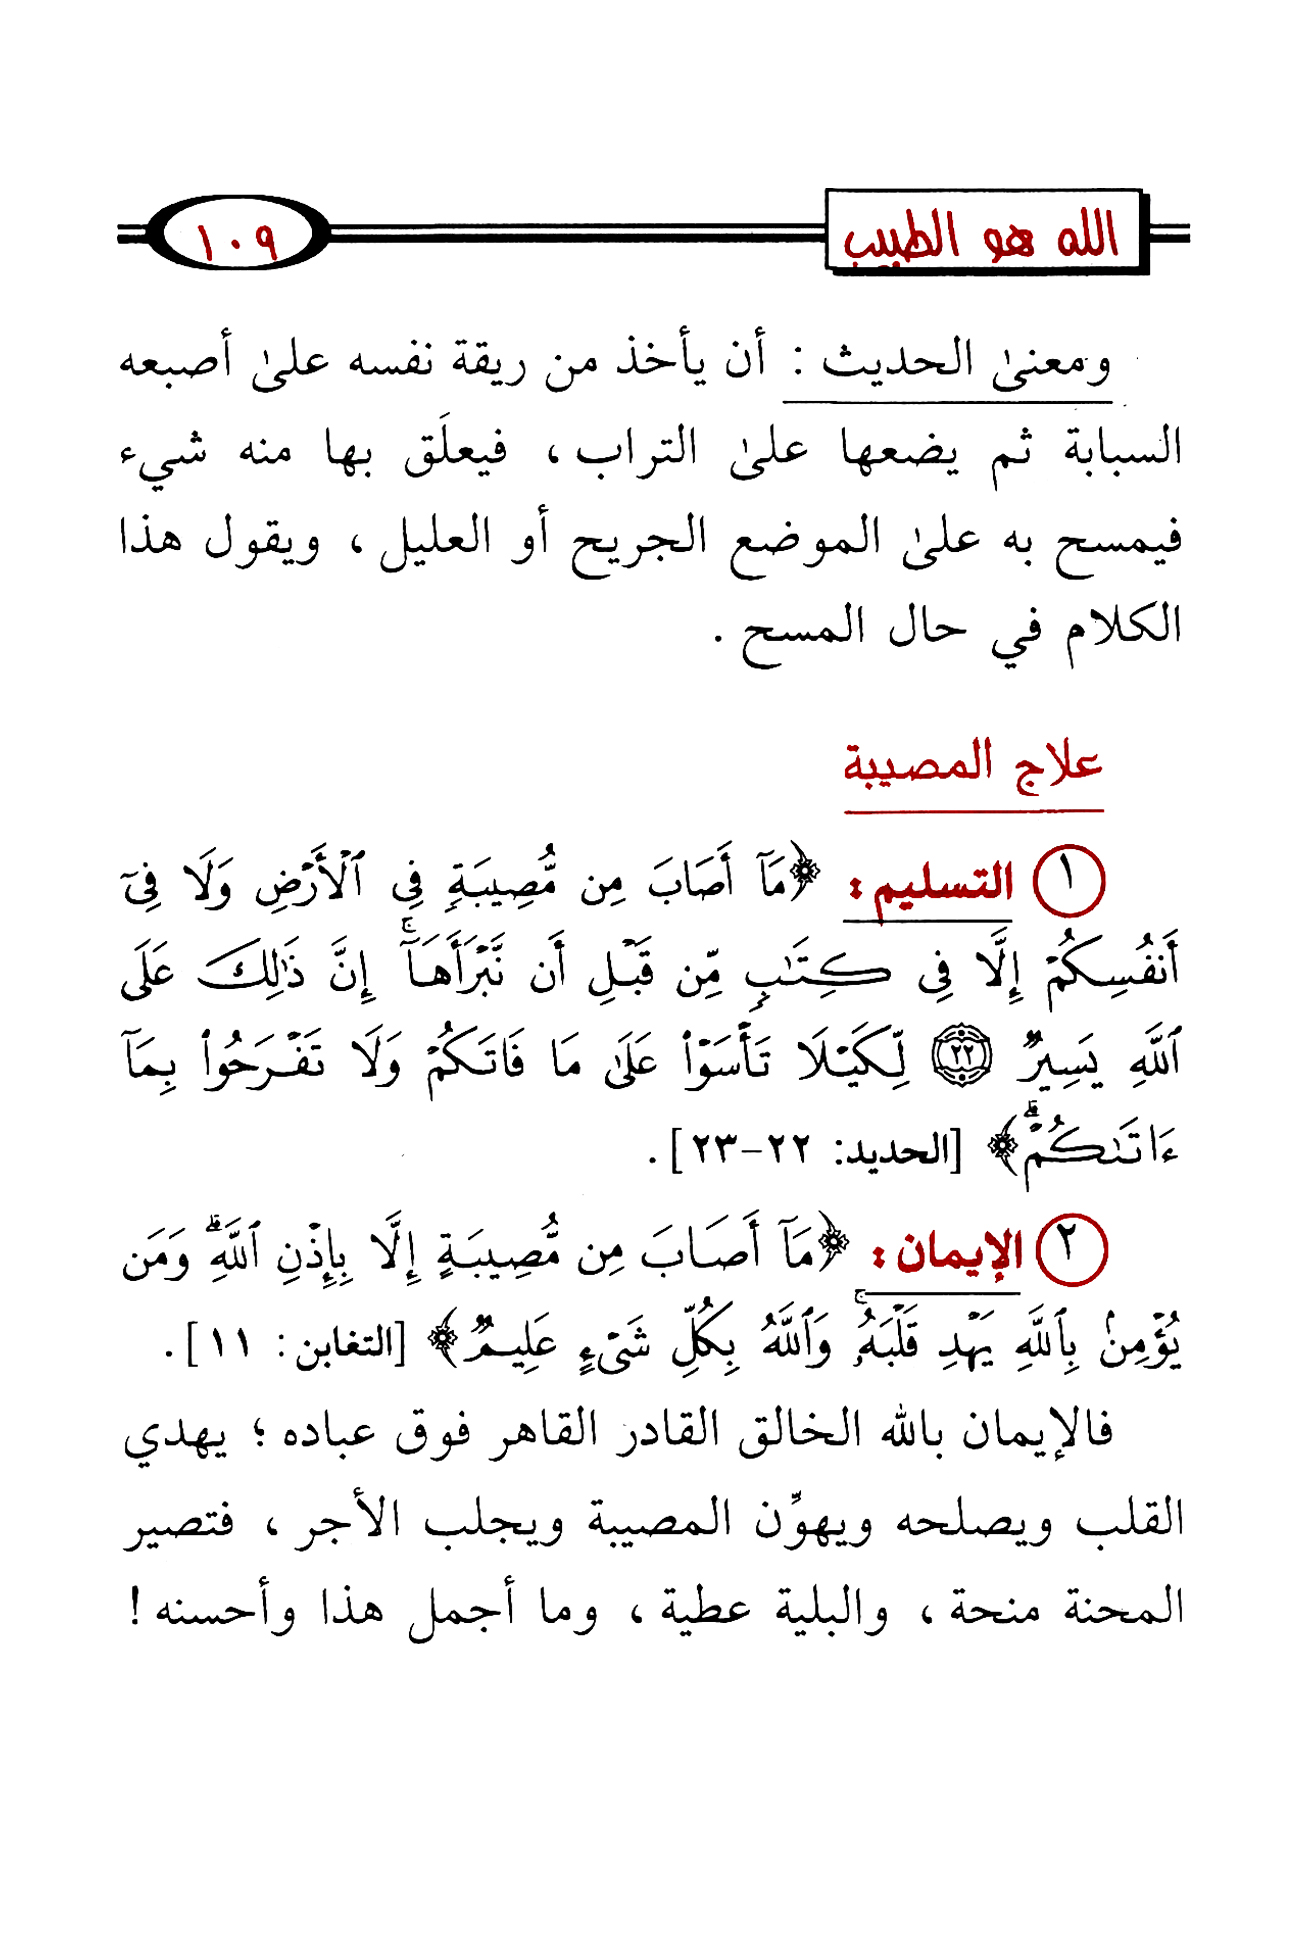 الله هو الطبيب
١٠٩
ومعنىٰ الحديث : أن يأخذ من ريقة نفسه علىٰ أصبعه
السبابة ثم يضعها علىٰ التراب ، فيعلَق بها منه شيء
فيمسح به علىٰ الموضع الجريح أو العليل ، ويقول هذا
الكلام في حال المسح .
علاج المصيبة
١ التسليم : ﴿مَآ أَصَابَ مِن مُّصِيبَةٍ فِي ٱلْأَرْضِ وَلَا فِىٓ
أَنفُسِكُمْ إِلَّا فِى كِتَٰبٍ مِّن قَبْلِ أَن نَّبْرَأَهَآ ۚ إِنَّ ذَٰلِكَ عَلَى
ٱللَّهِ يَسِيرٌ ٢٢ لِّكَيْلَا تَأْسَوْا۟ عَلَىٰ مَا فَاتَكُمْ وَلَا تَفْرَحُوا۟ بِمَآ
ءَاتَىٰكُمْ ۗ﴾ [الحديد: ٢٢-٢٣] .
٢ الإيمان : ﴿مَآ أَصَابَ مِن مُّصِيبَةٍ إِلَّا بِإِذْنِ ٱللَّهِ ۗ وَمَن
يُؤْمِنۢ بِٱللَّهِ يَهْدِ قَلْبَهُۥ ۚ وَٱللَّهُ بِكُلِّ شَىْءٍ عَلِيمٌ﴾ [التغابن : ١١] .
فالإيمان بالله الخالق القادر القاهر فوق عباده ؛ يهدي
القلب ويصلحه ويهوِّن المصيبة ويجلب الأجر ، فتصير
المحنة منحة ، والبلية عطية ، وما أجمل هذا وأحسنه !